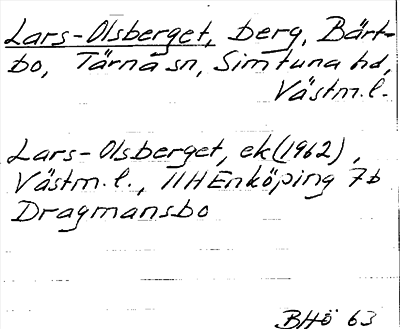 Lars-Olsberget, berg, Bärt-
bo, Tärna sn, Simtuna hd,
Västm. l.
Lars-Olsberget, ek (1962),
Västm. l., 11H Enköping 7b
Dragmansbo
BHö 63